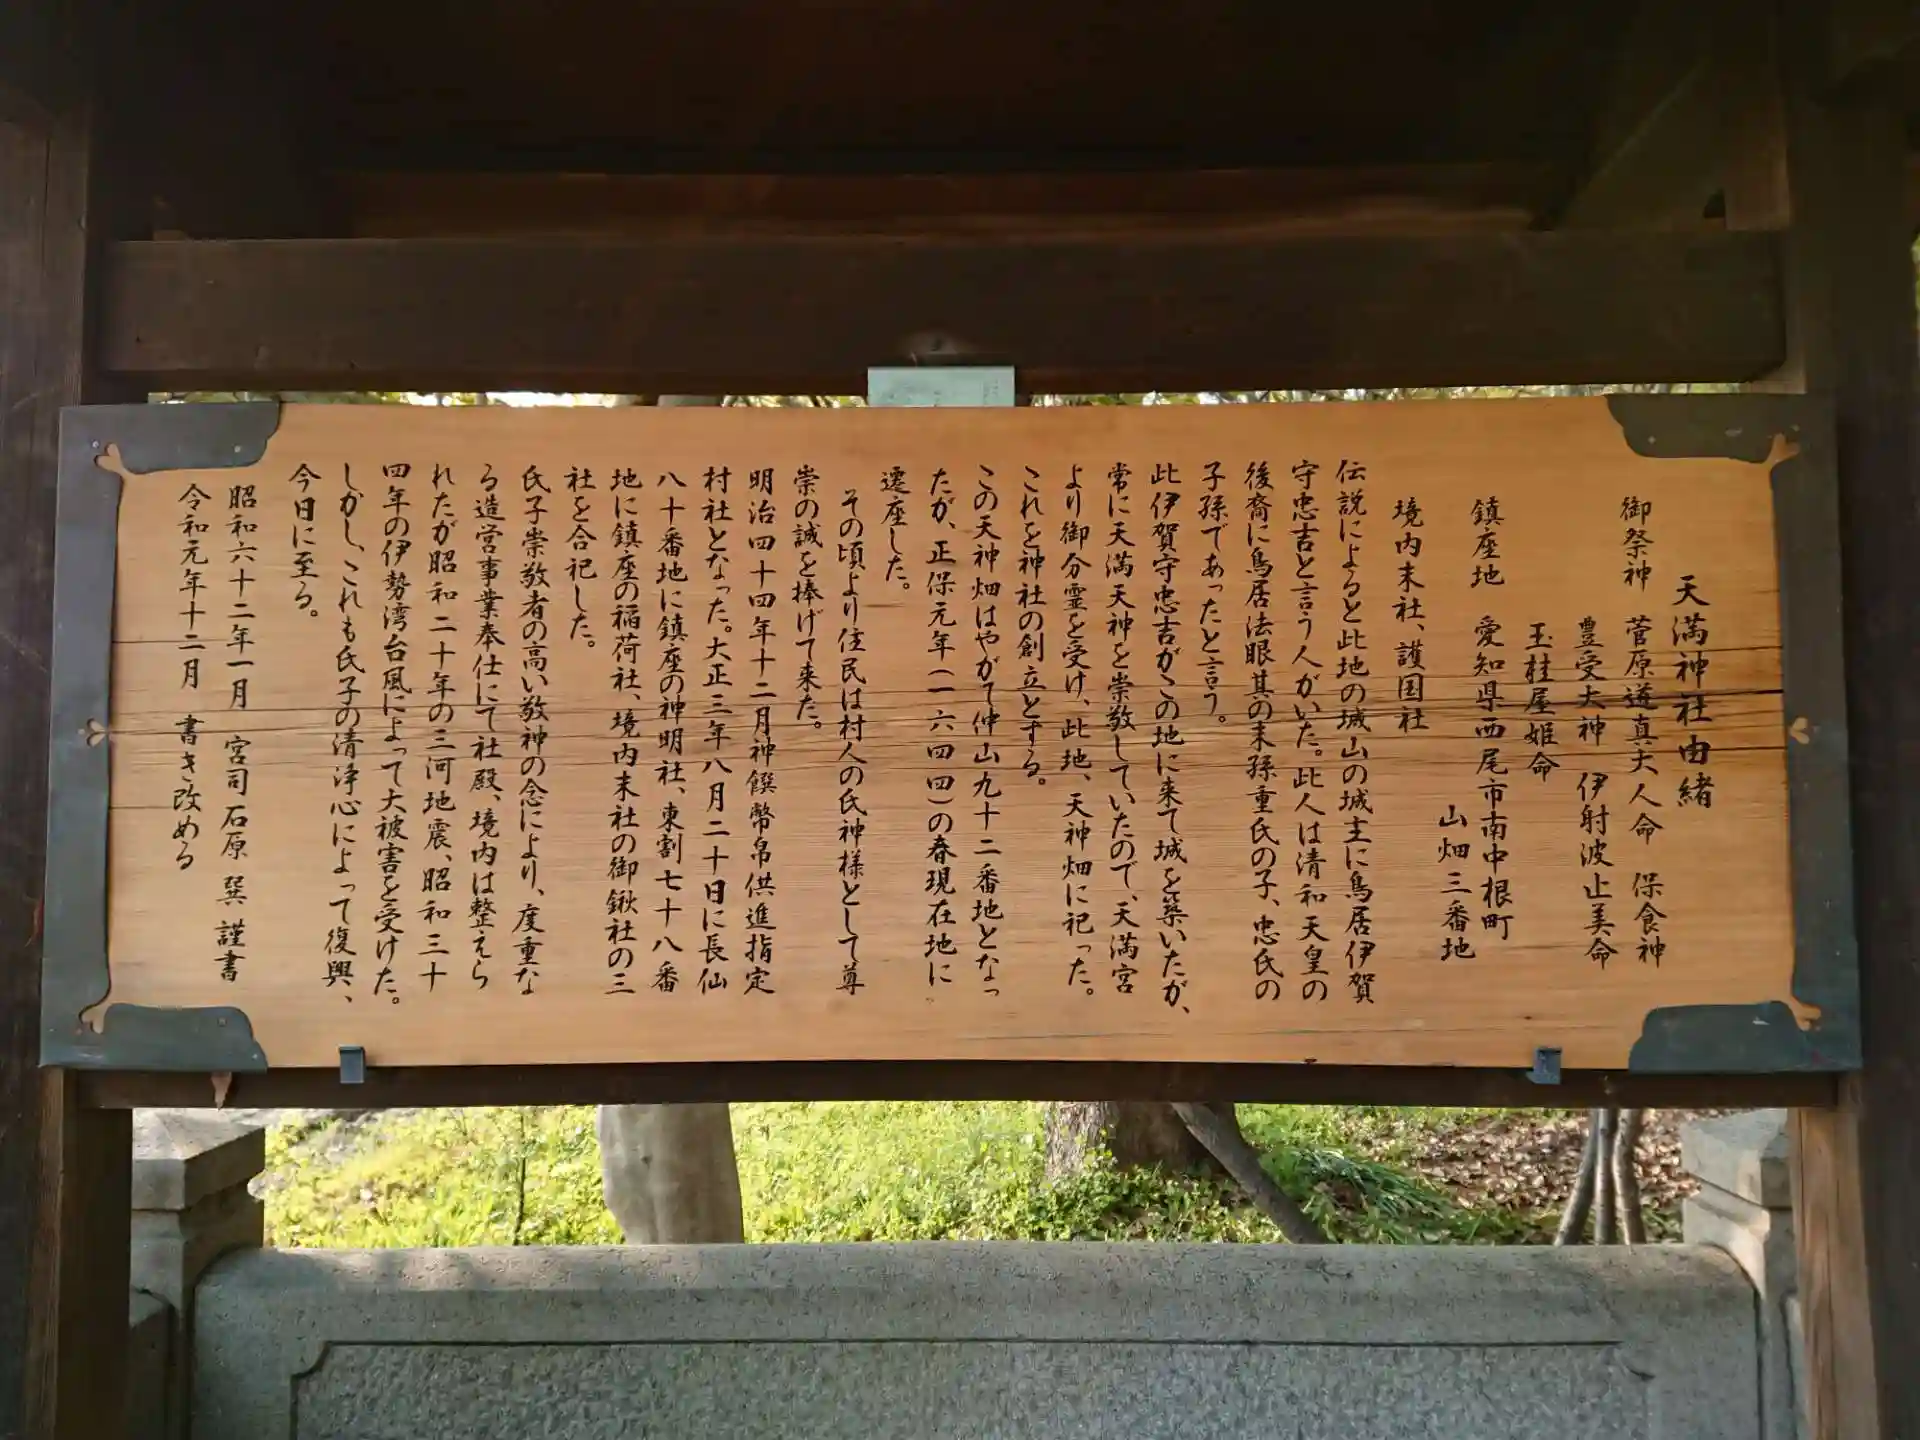 天満神社由緒
御祭神　菅原道真大人命　保食神
豊受大神　伊射波止美命
玉桂屋姫命
鎮座地　愛知県西尾市南中根町
山畑三番地
境内末社、護国社
伝説によると此地の城山の城主に鳥居伊賀
守忠吉と言う人がいた。此人は清和天皇の
後裔に鳥居法眼其の末孫重氏の子、忠氏の
子孫であったと言う。
此伊賀守忠吉がこの地に来て城を築いたが、
常に天満天神を崇敬していたので、天満宮
より御分霊を受け、此地、天神畑に祀った。
これを神社の創立とする。
この天神畑はやがて仲山九十二番地となっ
たが、正保元年(一六四四)の春現在地に
遷座した。
その頃より住民は村人の氏神様として尊
崇の誠を捧げて来た。
明治四十四年十二月神饌幣帛供進指定
村社となった。大正三年八月二十日に長仙
八十番地に鎮座の神明社、東割七十八番
地に鎮座の稲荷社、境内末社の御鍬社の三
社を合祀した。
氏子崇敬者の高い敬神の念により、度重な
る造営事業奉仕にて社殿、境内は整えら
れたが昭和二十年の三河地震、昭和三十
四年の伊勢湾台風によって大被害を受けた。
しかし、これも氏子の清浄心によって復興、
今日に至る。
昭和六十二年一月　宮司石原 巽 謹書
令和元年十二月　書き改める